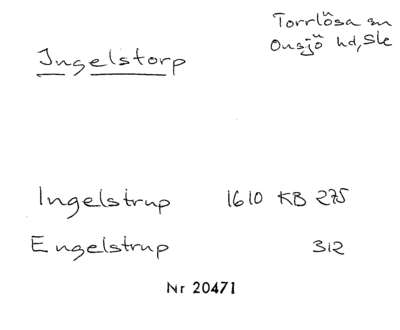 Torrlösa sn
Ingelstorp
Onsjö hd, Sk
Ingelstrup 1610 KB 275
Engelstrup 312
Nr 20471